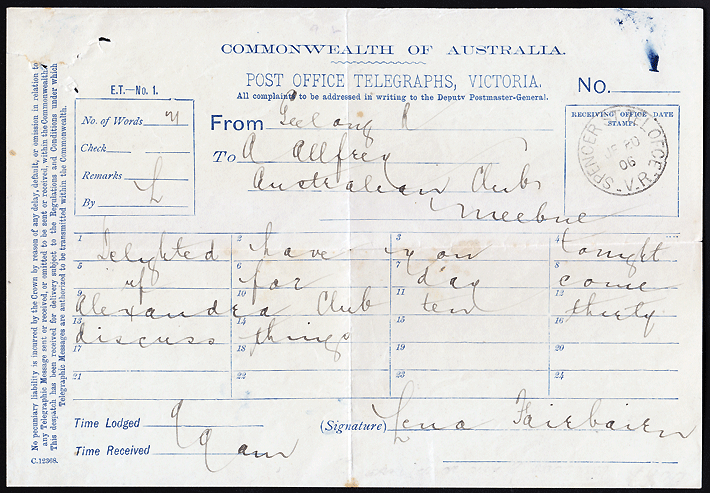 COMMONWEALTH OF AUSTRALIA.
POST OFFICE TELEGRAPHS, VICTORIA.
All complaints to be addressed in writing to the Deputy Postmaster-General.
No.
E.T.—No. 1.
No. of Words
Check
Remarks
By L
From Geelong R
To A Allfrey
Australian Club
Melbne
RECEIVING OFFICE DATE
STAMP.
SPENCER OFFCE V.R. 06
1 Delighted 2 have 3 you 4 tonight
5 if 6 for 7 day 8 come
9 Alexandra 10 Club 11 ten 12 thirty
13 discuss 14 things 15 16
17 18 19 20
21 22 23 24
Time Lodged 9
Time Received 9 am
(Signature) Lena Fairbairn
C.12368.
No pecuniary liability is incurred by the Crown by reason of any delay, default, or omission in relation to
any Telegraphic Message sent or received, or omitted to be sent or received, within the Commonwealth.
This despatch has been received for delivery subject to the Regulations and Conditions under which
Telegraphic Messages are authorized to be transmitted within the Commonwealth.